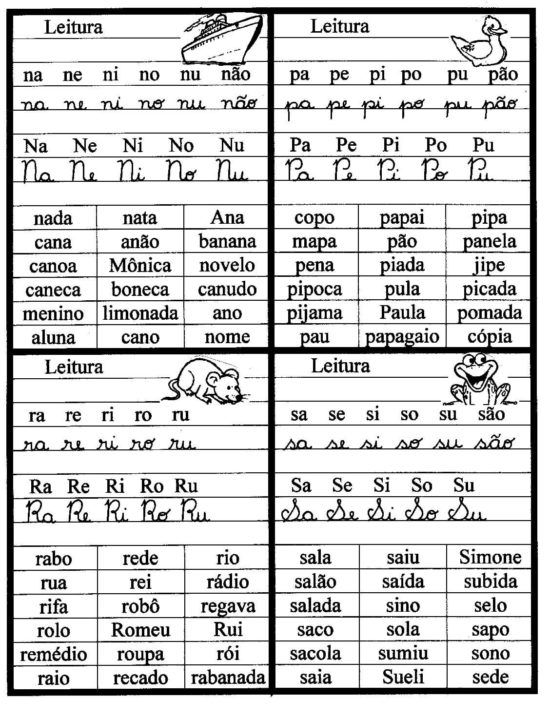 Leitura
na ne ni no nu não
na ne ni no nu não
Na Ne Ni No Nu
Na Ne Ni No Nu
nada nata Ana
cana anão banana
canoa Mônica novelo
caneca boneca canudo
menino limonada ano
aluna cano nome
Leitura
pa pe pi po pu pão
pa pe pi po pu pão
Pa Pe Pi Po Pu
Pa Pe Pi Po Pu
copo papai pipa
mapa pão panela
pena piada jipe
pipoca pula picada
pijama Paula pomada
pau papagaio cópia
Leitura
ra re ri ro ru
ra re ri ro ru
Ra Re Ri Ro Ru
Ra Re Ri Ro Ru
rabo rede rio
rua rei rádio
rifa robô regava
rolo Romeu Rui
remédio roupa rói
raio recado rabanada
Leitura
sa se si so su são
sa se si so su são
Sa Se Si So Su
Sa Se Si So Su
sala saiu Simone
salão saída subida
salada sino selo
saco sola sapo
sacola sumiu sono
saia Sueli sede